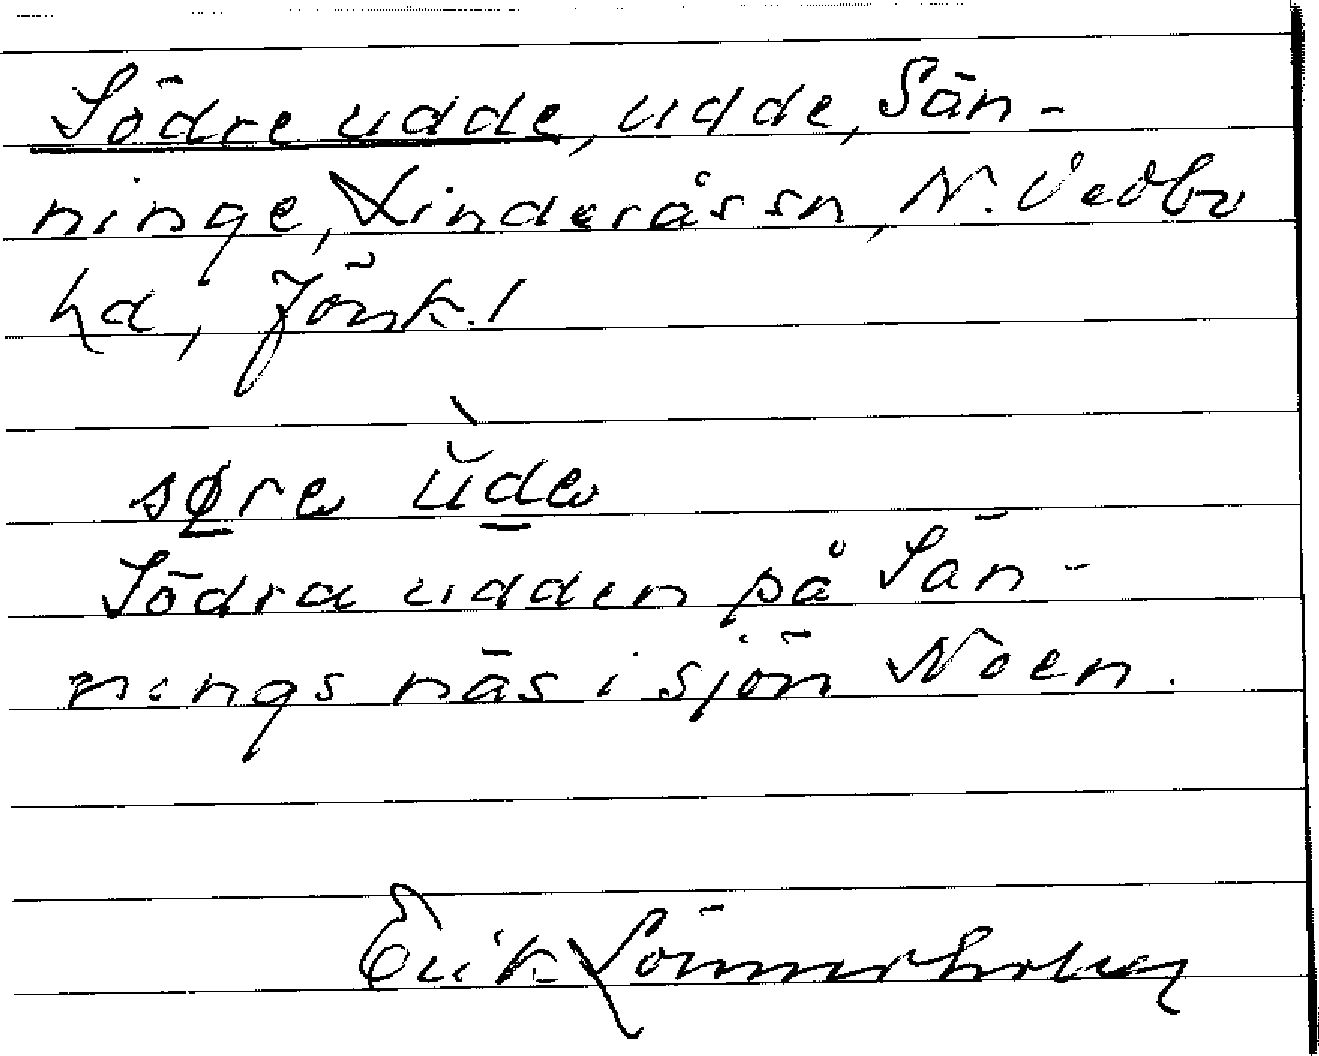 Södre udde, udde, Sän-
ninge, Linderås sn, N. Vedbo
hd, Jönk. l
søre ùde
Södra udden på Sän-
nings näs i sjön Noen.
Erik